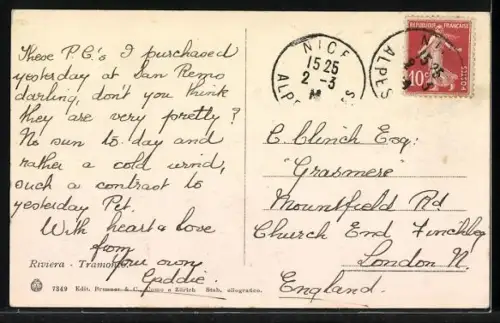 These P.C's I purchased
yesterday at San Remo
darling, don't you think
they are very pretty?
No sun to-day and
rather a cold wind,
such a contrast to
yesterday Pet.
With heart & love
from
your own
Gaddie.
Riviera - Tramonto
7349 Edit. Brunner & C., Como e Zürich Stab. eliografico.
NICE
15 25
2 - 3
ALPES
REPUBLIQUE FRANÇAISE
10c
POSTES
NICE
15 25
ALPES
C. Clinch Esq:
"Grasmere"
Mountfield Rd.
Church End Finchley
London N.
England.